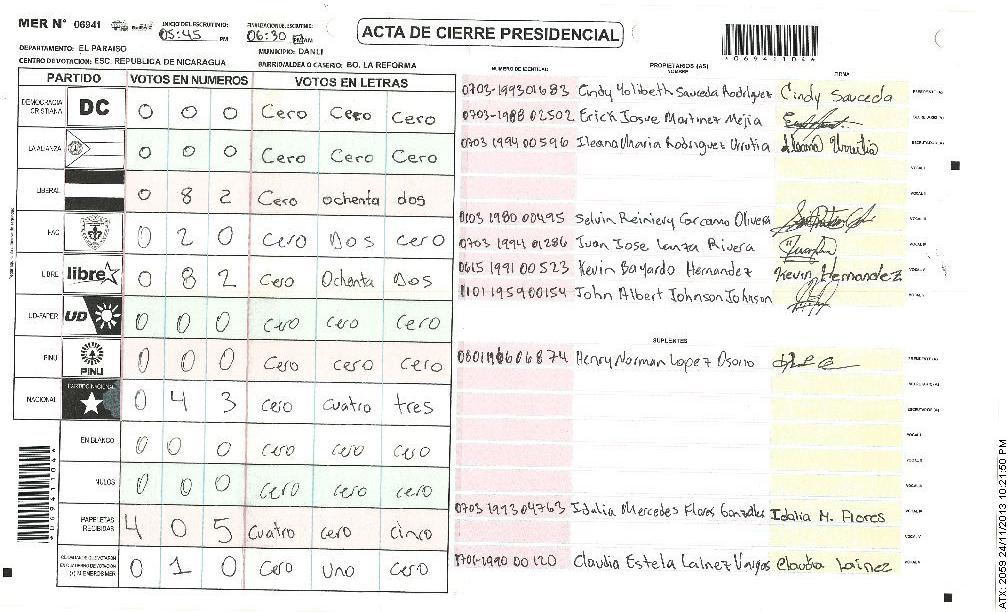 MER N° 06941 INICIO DEL ESCRUTINIO: 05:45 PM FINALIZACION DEL ESCRUTINIO: 06:30 PM
ACTA DE CIERRE PRESIDENCIAL
*06941104*
DEPARTAMENTO: EL PARAISO MUNICIPIO: DANLI
CENTRO DE VOTACION: ESC. REPUBLICA DE NICARAGUA BARRIO/ALDEA O CASERIO: BO. LA REFORMA
PARTIDO VOTOS EN NUMEROS VOTOS EN LETRAS
DEMOCRACIA CRISTIANA DC 0 0 0 Cero Cero Cero
LA ALIANZA 0 0 0 Cero Cero Cero
LIBERAL 0 8 2 Cero ochenta dos
0 2 0 Cero Dos cero
LIBRE libre 0 8 2 Cero Ochenta Dos
UD-FAPER UD 0 0 0 Cero cero Cero
PINU PINU 0 0 0 Cero cero cero
NACIONAL PARTIDO NACIONAL 0 4 3 cero cuatro tres
EN BLANCO 0 0 0 cero cero cero
NULOS 0 0 0 cero cero cero
PAPELETAS RECIBIDAS 4 0 5 cuatro cero cinco
0 1 0 Cero Uno Cero
NUMERO DE IDENTIDAD PROPIETARIOS (AS) NOMBRE FIRMA
0703-199301683 Cindy Yolibeth Sauceda Rodriguez Cindy Sauceda PRESIDENTE (A)
0703-1988 02502 Erick Josue Martinez Mejia SECRETARIO (A)
0703 1994 00596 Ileana Maria Rodriguez Urrutia Ileana Urrutia ESCRUTADOR (A)
VOCAL I
VOCAL II
0103 1980 00495 Selvin Reiniery Carcamo Olivera VOCAL III
0703 1994 01286 Juan Jose Lanza Rivera VOCAL IV
0615 1991 00523 Kevin Bayardo Hernandez Kevin Hernandez VOCAL V
1101 195900154 John Albert Johnson Johnson
SUPLENTES
Henry Norman Lopez Osorio PRESIDENTE (A)
SECRETARIO (A)
ESCRUTADOR (A)
VOCAL I
VOCAL II
0703 199304763 Idalia Mercedes Flores Gonzales Idalia M. Flores VOCAL III
VOCAL IV
0701-1990 00120 Claudia Estela Lainez Vargas Claudia Lainez
*06941104*
ATX: 2059 24/11/2013 10:21:50 PM